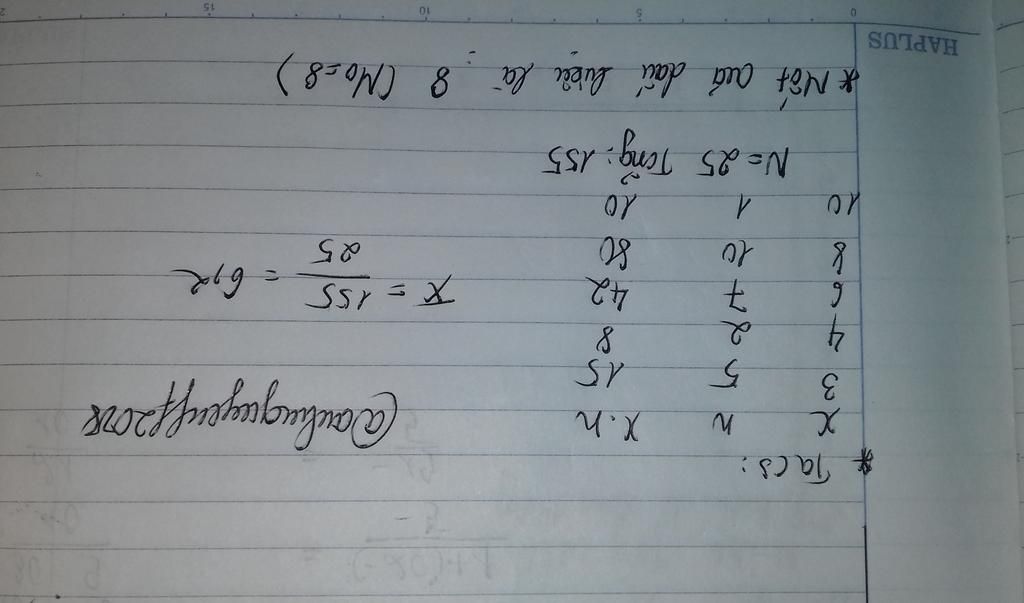 * Ta có:
x n x.n
3 5 15
4 2 8
6 7 42
8 10 80
10 1 10
N = 25 Tổng: 155
X = 155/25 = 6,2
* Mốt của dấu hiệu là: 8 (Mo=8)
HAPLUS
0 5 10 15